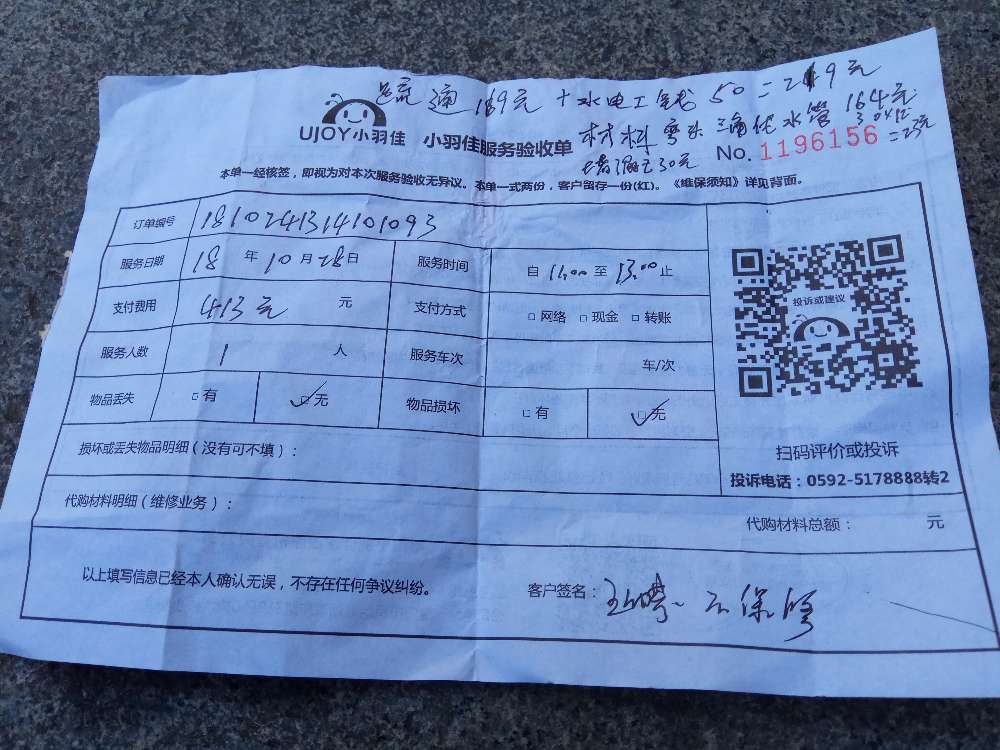 通 169元 + 水电工钱 50 = 249元
UJOY小羽佳 小羽佳服务验收单
材料 弯头 三角 水管 164元
30元
No. 1196156
本单一经核签,即视为对本次服务验收无异议。本单一式两份,客户留存一份(红)。《维保须知》详见背面。
订单编号 1810241314101093
服务日期 18 年 10 月 28 日 服务时间 自 11:00 至 13:00 止
支付费用 413元 元 支付方式 □ 网络 □ 现金 □ 转账
服务人数 1 人 服务车次 车/次
物品丢失 □ 有 ✓□ 无 物品损坏 □ 有 ✓□ 无
投诉或建议
扫码评价或投诉
投诉电话:0592-5178888转2
损坏或丢失物品明细(没有可不填):
代购材料明细(维修业务):
代购材料总额: 元
以上填写信息已经本人确认无误,不存在任何争议纠纷。
客户签名: 不保修